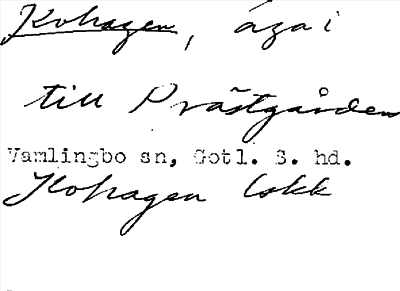 Kohagen, äga i
till Prästgården
Vamlingbo sn, Gotl. S. hd.
Kohagen